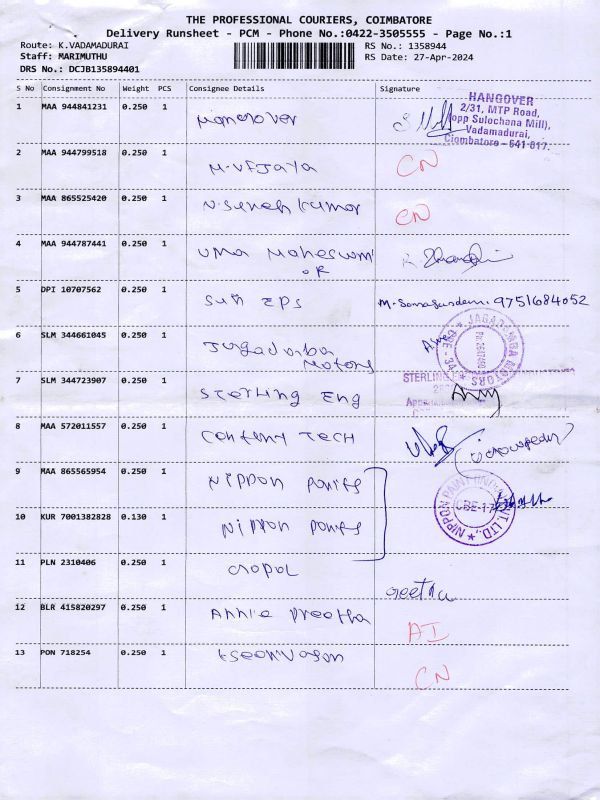 THE PROFESSIONAL COURIERS, COIMBATORE
Delivery Runsheet - PCM - Phone No.:0422-3505555 - Page No.:1
Route: K.VADAMADURAI
Staff: MARIMUTHU
DRS No.: DCJB135894401
RS No.: 1358944
RS Date: 27-Apr-2024
S No Consignment No Weight PCS Consignee Details Signature
1 MAA 944841231 0.250 1
HANGOVER
2/31, MTP Road,
(opp Sulochana Mill),
Vadamadurai,
Ciombatore - 641 017.
2 MAA 944799518 0.250 1 M.Vijaya CN
3 MAA 865525420 0.250 1 N.Suresh kumar CN
4 MAA 944787441 0.250 1 UMA Maheswari
OR
5 DPI 10707562 0.250 1 Sun EPS M. 9751684052
6 SLM 344661045 0.250 1 Jugadamba
Motors
JAGADAMBA MOTORS
CBE - 34
7 SLM 344723907 0.250 1 STERLING Eng
STERLING
8 MAA 572011557 0.250 1 TECH
9 MAA 865565954 0.250 1 Nippon
10 KUR 7001382828 0.130 1 Nippon
NIPPON PAINT PVT. LTD.,
CBE-17
11 PLN 2310406 0.250 1 Cropol Geetha
12 BLR 415820297 0.250 1 Annie Preetha AI
13 PON 718254 0.250 1 CN